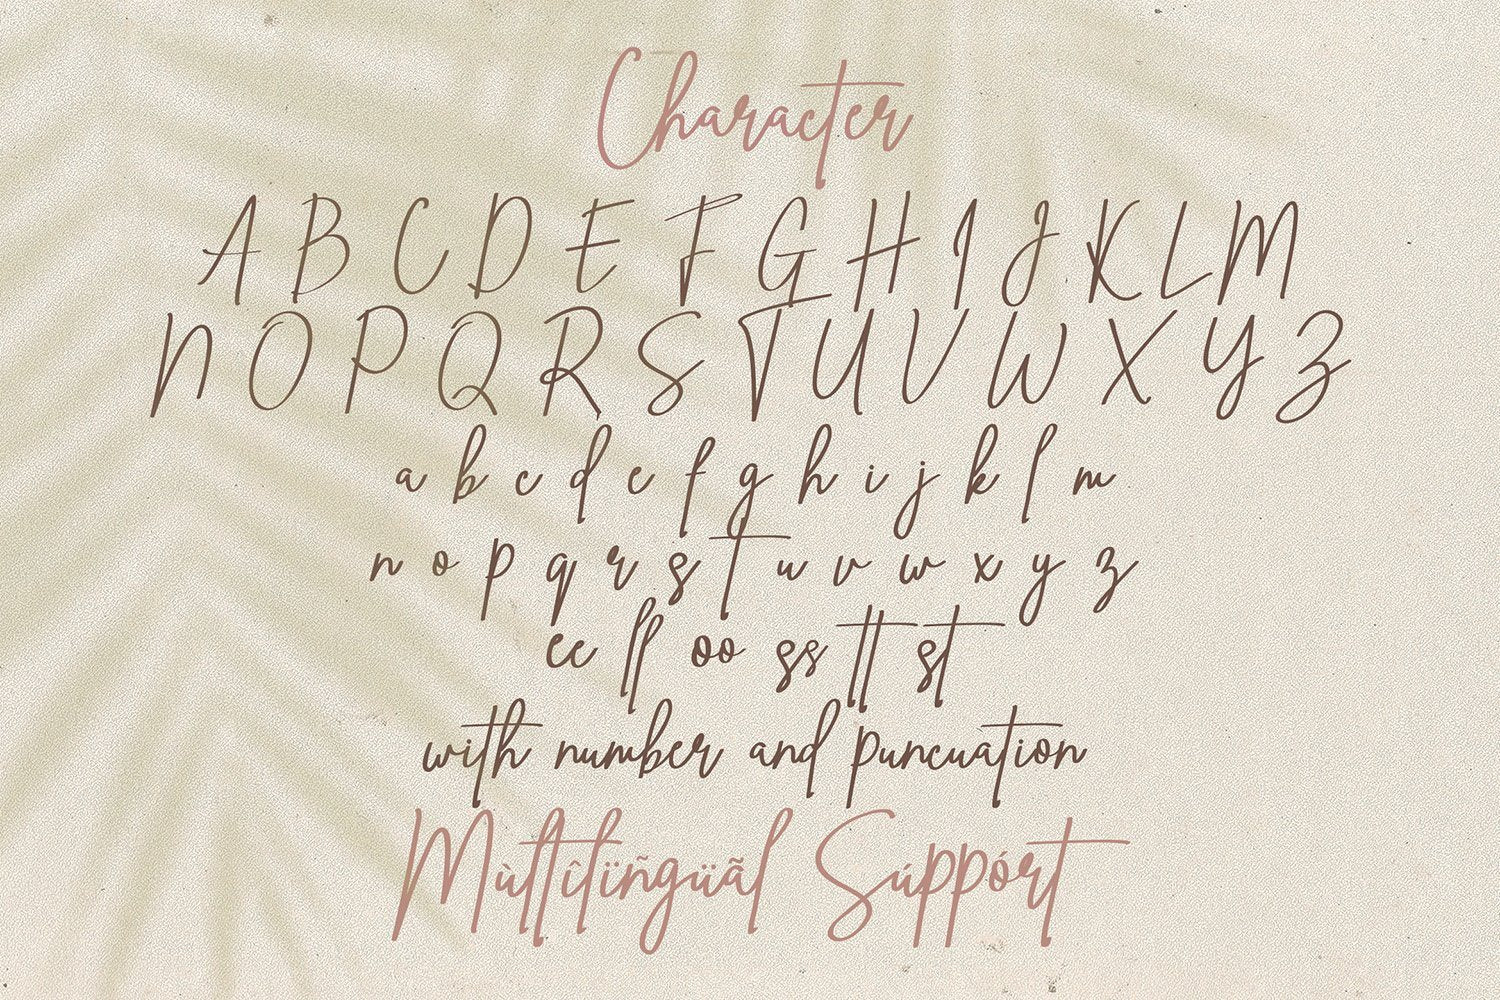 Character
A B C D E F G H I J K L M
N O P Q R S T U V W X Y Z
a b c d e f g h i j k l m
n o p q r s t u v w x y z
ee ll oo ss tt st
with number and puncuation
Mùltîlïñgüãl Súppórt